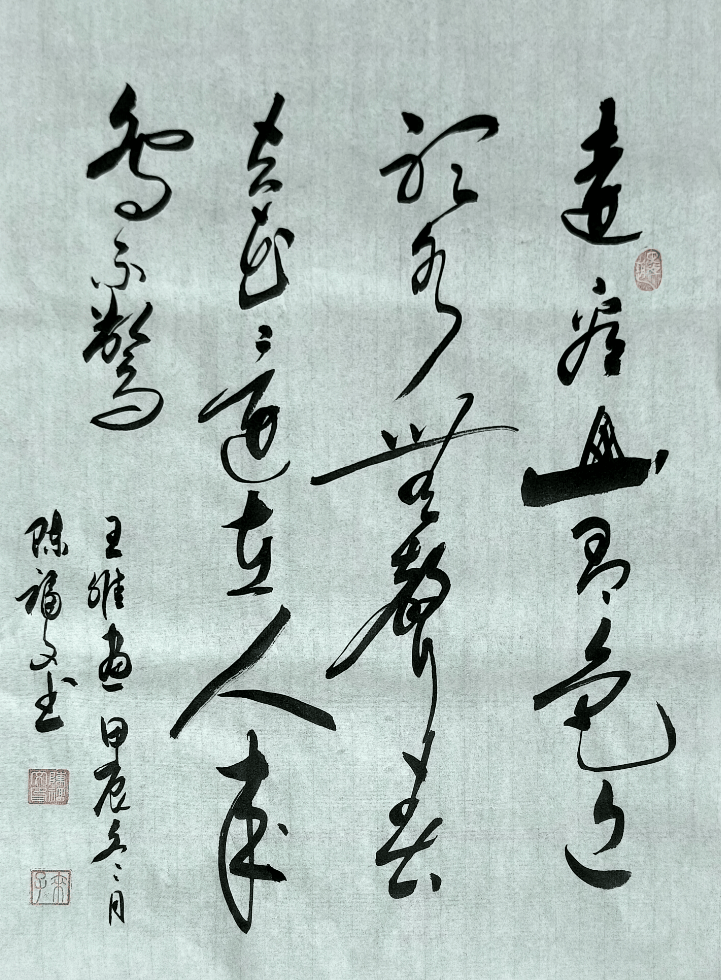 遠看山有色近
聽水無聲春
去花還在人来
鳥不驚
王維畫 甲辰冬月
陈福文书